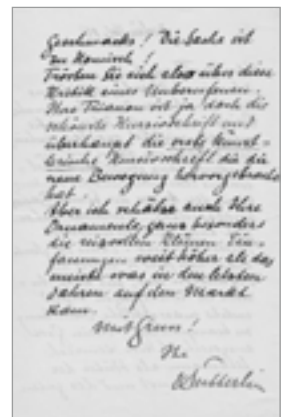 Geschmacks! Die Sache ist
zu komisch!
Trösten Sie sich also über diese
Kritik eines Unberufenen.
Ihre Trianon ist ja doch die
schönste Kursivschrift und
überhaupt die erste künst-
lerische Kursivschrift die die
neue Bewegung hervorgebracht
hat.
Aber ich schätze auch Ihre
Ornamente, ganz besonders
die reizvollen kleinen Ein-
fassungen weit höher als das
meiste was in den letzten
Jahren auf den Markt
kam.
Mit Gruss!
Ihr